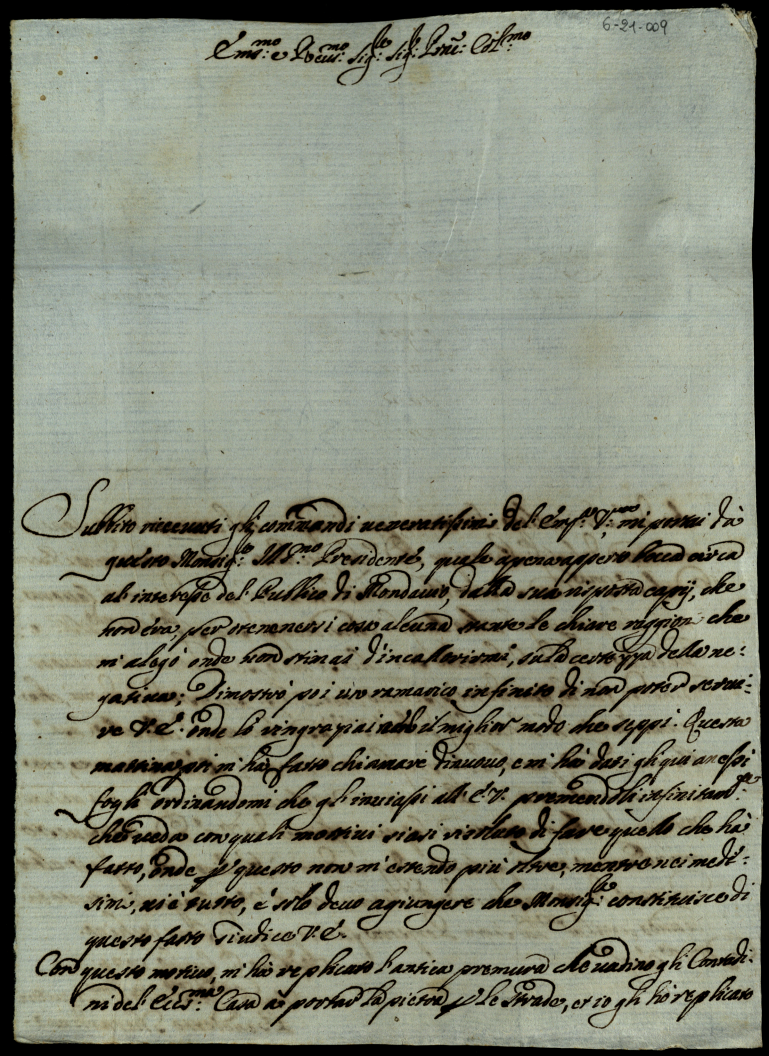 6-21-009
Em:mo e Rev:mo Sig:re Sig:re Prōn: Col:mo
Subbito riceuuti gli commandi ueneratissimi del' Em: V:, mi portai dà
questo Monsig:re Ill:mo Presidente, quale apena apperto bocca circa
al' interesse del' Publico di Mondauio, dalla sua risposta capij, che
non u'era per ottenersi cosa alcuna stante le chiare raggioni che
m'alegò onde non stimai d'incallorirmi, sù la certezza della ne:
gatiua; Dimostrò poi un ramarico infinito di non poter serui:
re V. E. onde lo ringraziai nel il miglior modo che seppi. Questa
mattina poi m'hà fatto chiamare di nuouo, e mi hà dati gli qui anessi
fogli ordinandomi che gl'inuiassi all' E. V. premendoli infinitam:te
che ueda con quali mottiui siasi risoluto di fare quello che hà
fatto, onde p questo non m'estendo più oltre, mentre nei medē:
simi, ui è tutto, è solo deuo agiungere che Monsig:re constituisce di
questo fatto Giudice V. E.
Con questo motiuo, m'hà replicato l'antica premura che uadino gli Contadi:
ni del' Ecc:ma Casa à portar la pietra p le strade, et io gli hò replicato